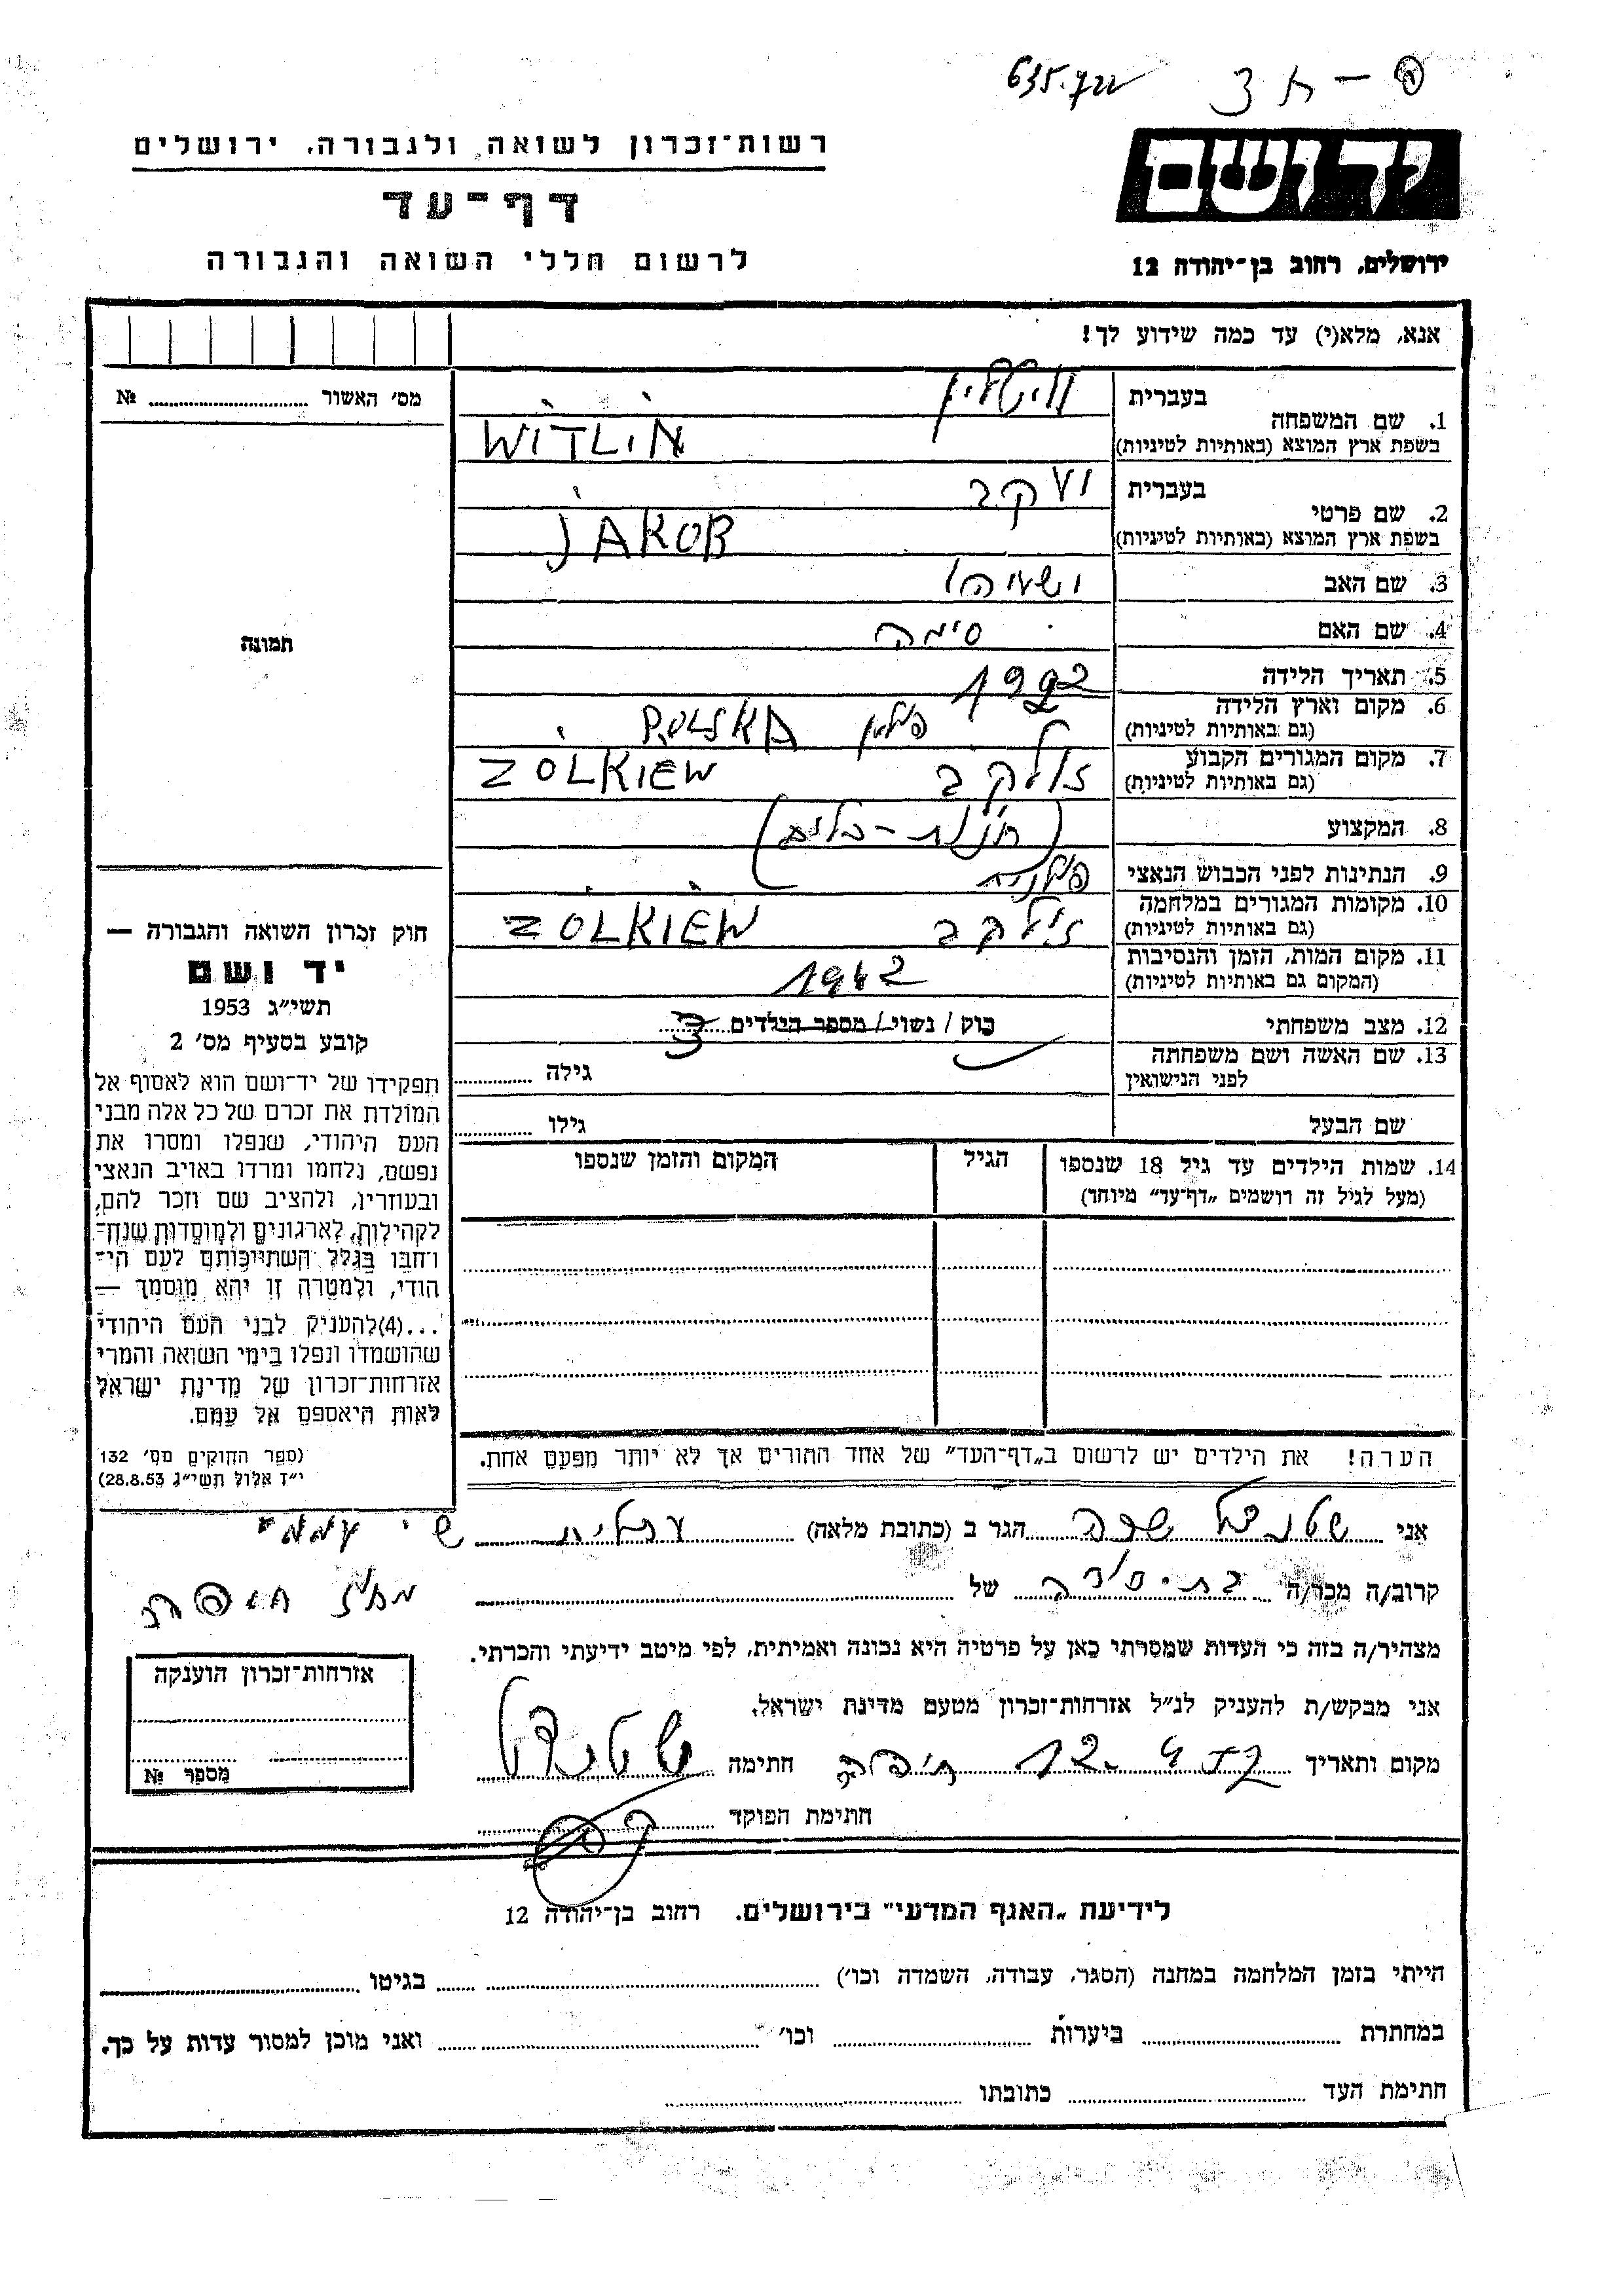 635.724
רשות־זכרון לשואה ולגבורה, ירושלים
דף־עד
לרשום חללי השואה והגבורה
יד ושם
ירושלים, רחוב בן־יהודה 12
אנא, מלא(י) עד כמה שידוע לך!
מס׳ האשור № ........
1. שם המשפחה
בעברית ויטלין
בשפת ארץ המוצא (באותיות לטיניות) WITLIN
2. שם פרטי
בעברית יעקב
בשפת ארץ המוצא (באותיות לטיניות) JAKOB
3. שם האב ישעיהו
4. שם האם סימה
5. תאריך הלידה
6. מקום וארץ הלידה
(גם באותיות לטיניות) פולין POLSKA
7. מקום המגורים הקבוע
(גם באותיות לטיניות) זולקב ZOLKIEW
8. המקצוע (חנות-כלים)
9. הנתינות לפני הכבוש הנאצי פולנית
10. מקומות המגורים במלחמה
(גם באותיות לטיניות) זולקב ZOLKIEW
11. מקום המות, הזמן והנסיבות
(המקום גם באותיות לטיניות) 1942
12. מצב משפחתי רוק / נשוי / מספר הילדים 3
13. שם האשה ושם משפחתה
לפני הנישואין גילה
שם הבעל גילו
14. שמות הילדים עד גיל 18 שנספו הגיל המקום והזמן שנספו
(מעל לגיל זה רושמים „דף־עד״ מיוחד)
תמונה
חוק זכרון השואה והגבורה —
יד ושם
תשי״ג 1953
קובע בסעיף מס׳ 2
תפקידו של יד־ושם הוא לאסוף אל
המולדת את זכרם של כל אלה מבני
העם היהודי, שנפלו ומסרו את
נפשם, נלחמו ומרדו באויב הנאצי
ובעוזריו, ולהציב שם וזכר להם,
לקהילות, לארגונים ולמוסדות שנח־
רחבו בגלל השתייכותם לעם הי־
הודי, ולמטרה זו יהא מוסמך —
...(4)להעניק לבני העם היהודי
שהושמדו ונפלו בימי השואה והמרי
אזרחות־זכרון של מדינת ישראל
לאות היאספם אל עמם.
(ספר החוקים מס׳ 132
י״ז אלול תשי״ג 28.8.53)
הערה! את הילדים יש לרשום ב„דף־העד״ של אחד ההורים אך לא יותר מפעם אחת.
אני שטנדל שרה הגר ב (כתובת מלאה)
קרוב/ה מכר/ה בת-דודה של
מצהיר/ה בזה כי העדות שמסרתי כאן על פרטיה היא נכונה ואמיתית, לפי מיטב ידיעתי והכרתי.
אני מבקש/ת להעניק לנ״ל אזרחות־זכרון מטעם מדינת ישראל.
מקום ותאריך חיפה חתימה שטנדל
חתימת הפוקד
אזרחות־זכרון הוענקה
מספר №
לידיעת „האגף המדעי״ בירושלים, רחוב בן־יהודה 12
הייתי בזמן המלחמה במחנה (הסגר, עבודה, השמדה וכו׳) ........ בגיטו ........
במחתרת ........ ביערות ........ וכו׳ ........ ואני מוכן למסור עדות על כך.
חתימת העד ........ כתובתו ........